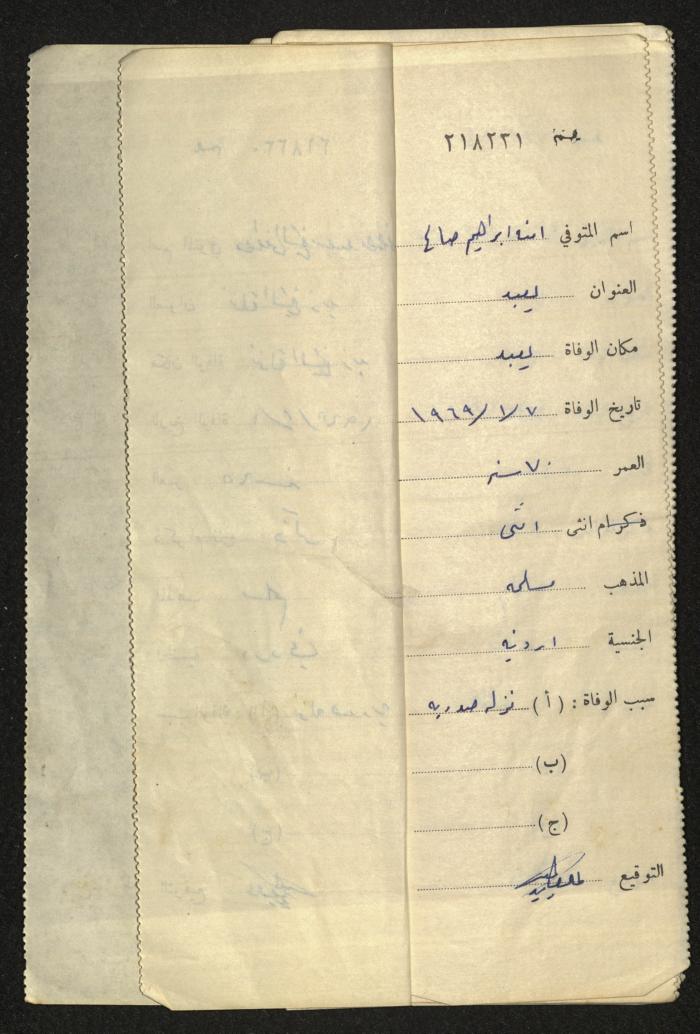 ٢١٨٢٢١
اسم المتوفي امنه ابراهيم صالح
العنوان يعبد
مكان الوفاة يعبد
تاريخ الوفاة ١٩٦٩/١/٧
العمر ٧٠ سنه
ذكر ام انثى انثى
المذهب مسلمه
الجنسية اردنيه
سبب الوفاة : (أ) نزله صدريه
(ب)
(ج)
التوقيع